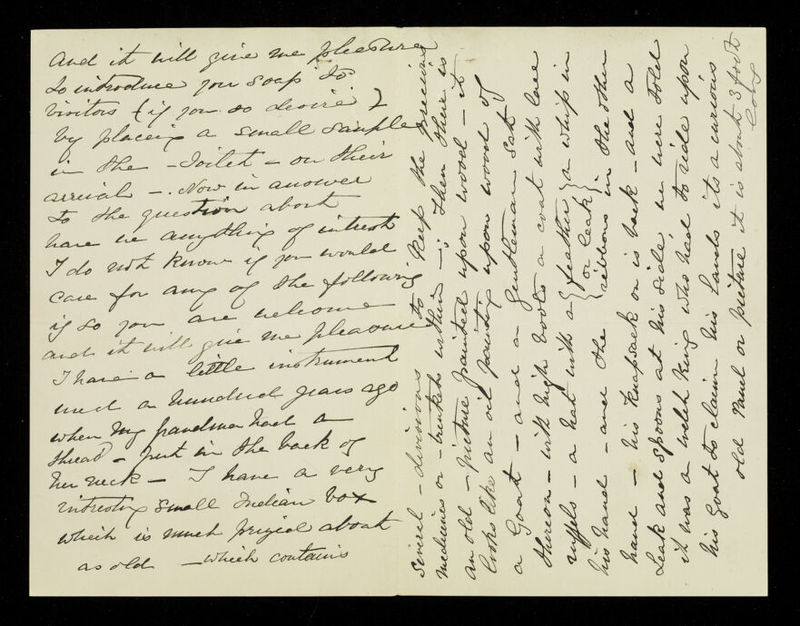 and it will give me pleasure
to introduce your soap to
visitors (if you so desire)
by placing a small sample
in the - Toilet - on their
arrival -. Now in answer
to the question about
have we anything of interest
I do not know if you would
care for any of the following
if so you are welcome
and it will give me pleasure
I have a little instrument
used a hundred years ago
when my grandma had a
thread - put in the back of
her neck - I have a very
intresting small Indian box
which is much prized about
as old - which contains
several - divisions to keep the
medicines or - trinkets within - ; then there is
an old - picture painted upon wood - it
looks like an oil painting upon wood of
a Goat - and a gentleman sat
thereon - with high boots a coat with lace
ruffels - a hat with a { feather } a whip in
{ or leak }
his hand - and the ribbons in the other
hand - his knapsack on is back - and a
Leak and spoons at his side, we were told
it was a welch King who had to ride upon
his goat to claim his Lands its a curious
old Panel or picture it is about 3 foot
long